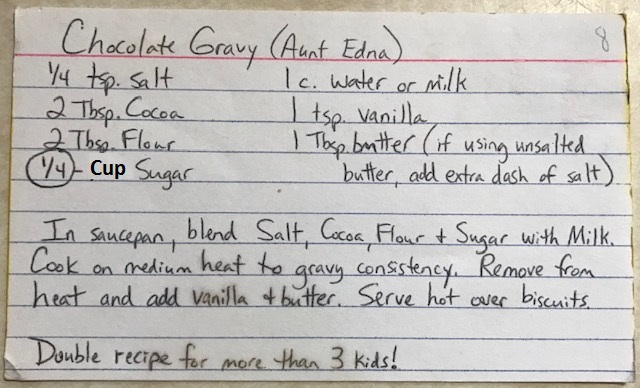 Chocolate Gravy (Aunt Edna) 8
1/4 tsp. salt 1 c. Water or Milk
2 Tbsp. Cocoa 1 tsp. vanilla
2 Tbsp. Flour 1 Tbsp. butter (if using unsalted
1/4 - Cup Sugar butter, add extra dash of salt)
In saucepan, blend Salt, Cocoa, Flour + Sugar with Milk.
Cook on medium heat to gravy consistency. Remove from
heat and add vanilla + butter. Serve hot over biscuits.
Double recipe for more than 3 kids!